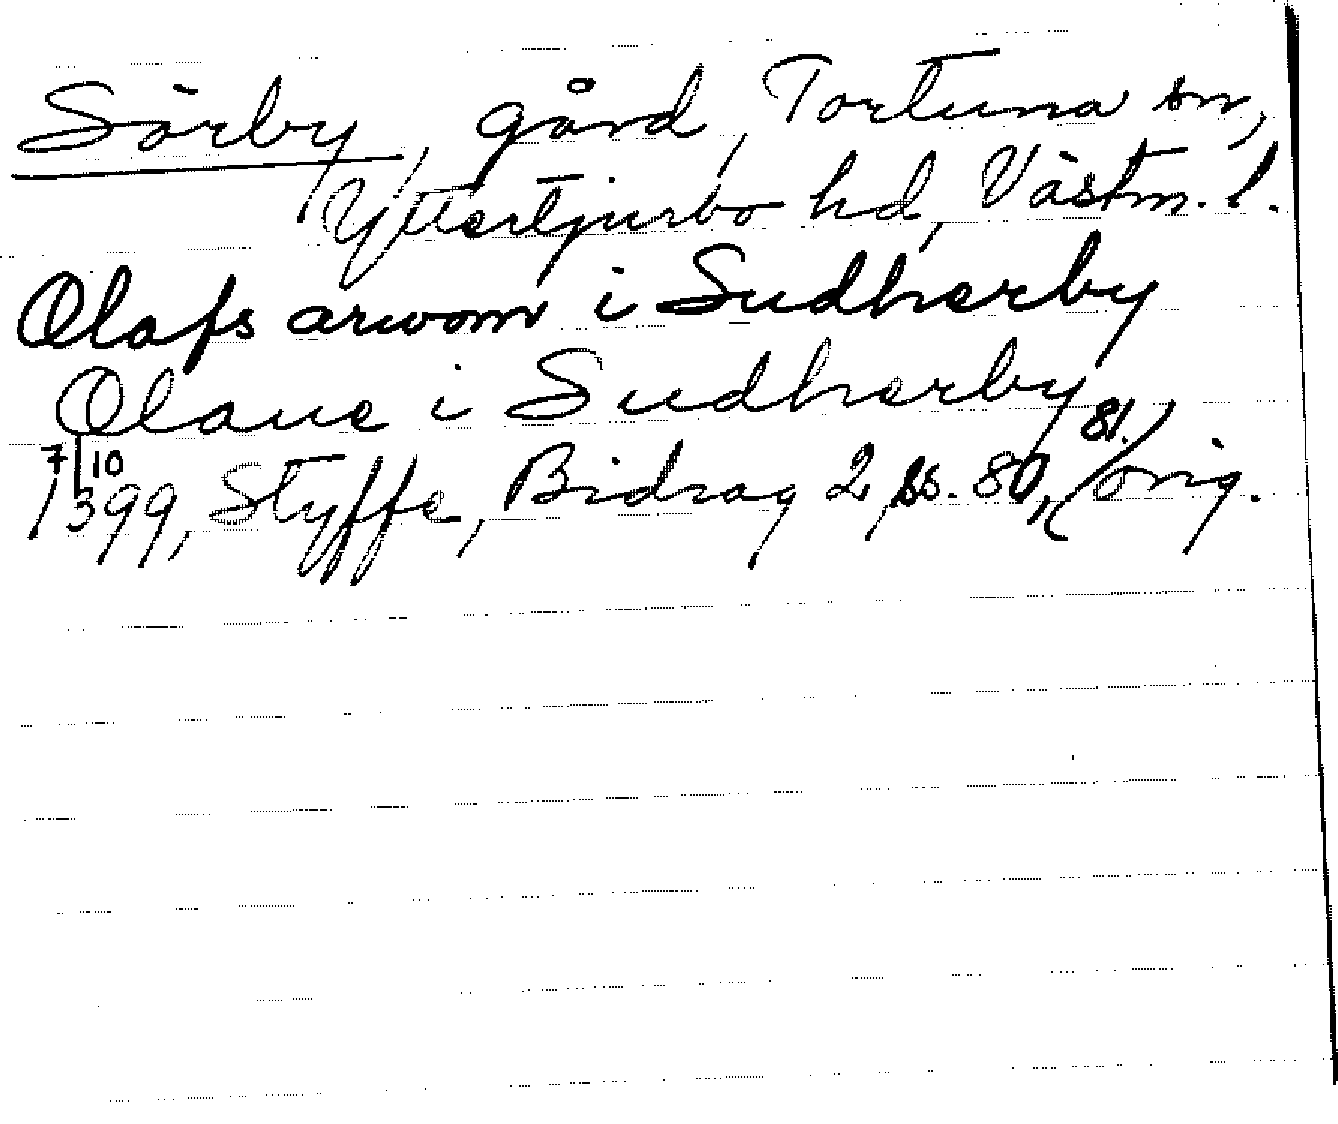 Sörby, gård, Tortuna sn,
Yttertjurbo hd, Västm. l.
Olafs arwom i Sudherby
Olaue i Sudherby
7/10 1399, Styffe, Bidrag 2, ss. 80, 81. (orig.